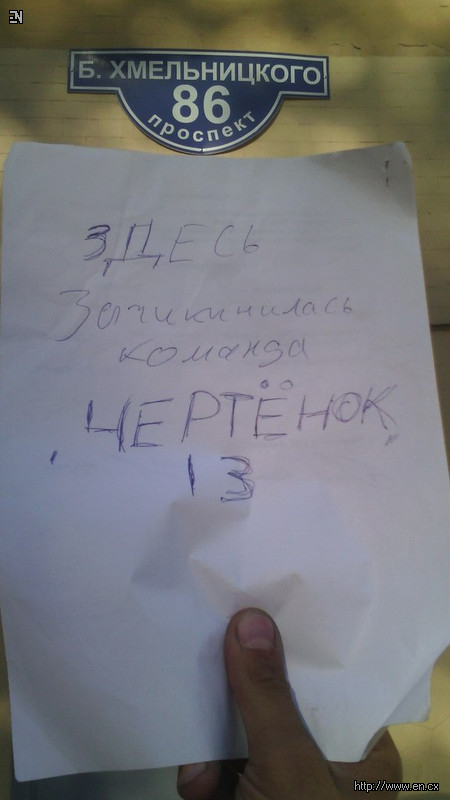 EN
Б. ХМЕЛЬНИЦКОГО
86
проспект
ЗДЕСЬ
Зачикинилась
команда
"ЧЕРТЁНОК"
13
http://www.en.cx